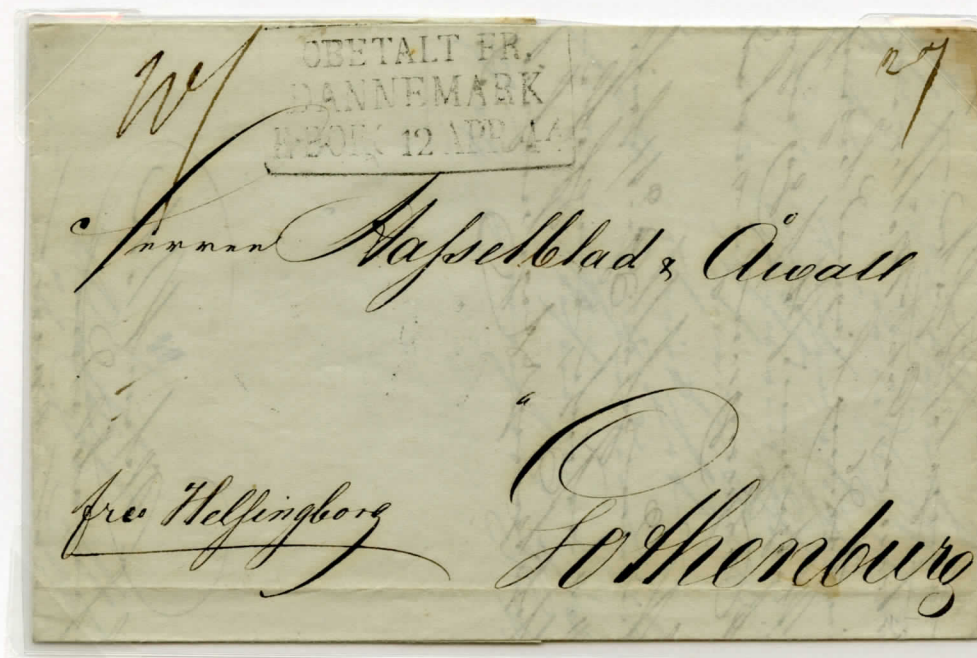 OBETALT FR.
DANNEMARK
H-BORG 12 APR. 44
27
Herren Haſselblad & Åwall
a
Gothenburg
fro Helſingborg